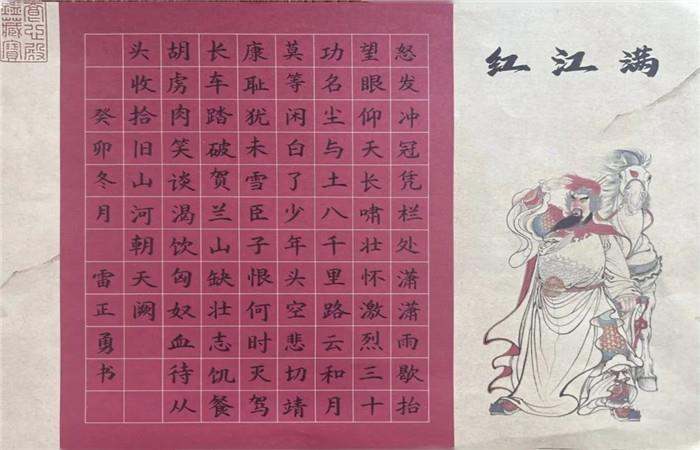 满江红
怒发冲冠凭栏处潇潇雨歇抬
望眼仰天长啸壮怀激烈三十
功名尘与土八千里路云和月
莫等闲白了少年头空悲切靖
康耻犹未雪臣子恨何时灭驾
长车踏破贺兰山缺壮志饥餐
胡虏肉笑谈渴饮匈奴血待从
头收拾旧山河朝天阙
癸卯冬月 雷正勇书
藏寶